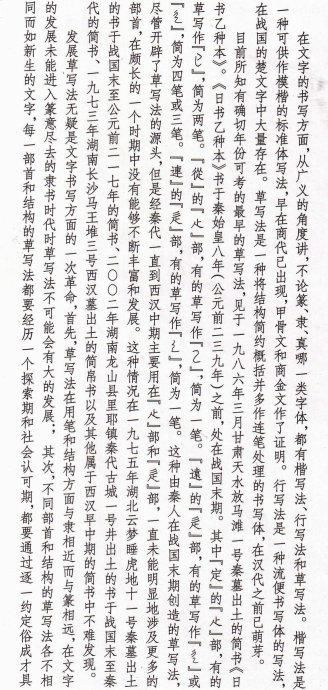 在文字的书写方面，从广义的角度讲，不论篆、隶、真哪一类字体，都有楷写法、行写法和草写法。楷写法是
一种可供作模楷的标准体写法，早在商代已出现，甲骨文和商金文作了证明。行写法是一种流便书写体的写法，
在战国的楚文字中大量存在。草写法是一种将结构简约概括并多作连笔处理的书写体，在汉代之前已萌芽。
目前所知有确切年份可考的最早的草写法，见于一九八六年三月甘肃天水放马滩一号秦墓出土的简书《日
书乙种本》。《日书乙种本》书于秦始皇八年（公元前二三九年）之前，处在战国末期。其中『定』的『』部，有的
草写作『』，简为两笔。『從』的『』部，有的草写作『』，简为一笔。『遺』的『辵』部，有的草写作『』或
『』，简为四笔或三笔。『連』的『辵』部，有的草写作『』，简为一笔。这种由秦人在战国末期创造的草写法，
尽管开辟了草写法的源头，但是经秦代一直到西汉中期主要用在『』部和『辵』部，一直未能明显地涉及更多的
部首，在颇长的一个时期中没有能够不断丰富和发展。这种情况在一九七五年湖北云梦睡虎地十一号秦墓出土
的书于战国末至公元前二一七年的简书、二〇〇二年湖南龙山县里耶镇秦代古城一号井出土的书于战国末至秦
代的简书、一九七三年湖南长沙马王堆三号西汉墓出土的简帛书以及其他属于西汉早中期的简书中不难发现。
发展草写法无疑是文字书写方面的一次革命，首先，草写法在用笔和结构方面与隶相近而与篆相远，在文字
的发展未能进入篆意尽去的隶书时代时草写法不可能会有大的发展；其次，不同部首和结构的草写法各不相
同而如新生的文字，每一部首和结构的草写法都要经历一个探索期和社会认可期，都要通过逐一约定俗成才具